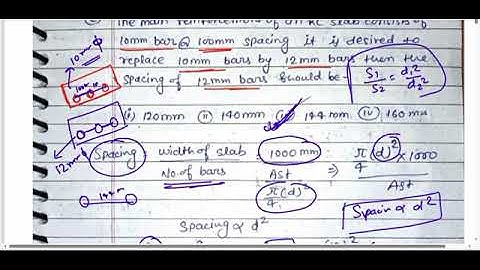 The main reinforcement of an RC slab consists of
10mm bar @ 100mm spacing it is desired to
replace 10mm bars by 12mm bars then the
spacing of 12mm bars should be-
S1/S2 = d1²/d2²
10mm ϕ
(i) 120mm (ii) 140mm 144mm (iv) 160mm
12mm
Spacing width of slab / No. of bars = 1000mm / Ast / π/4 (d)² ⇒ π/4 (d)² × 1000 / Ast
Spacing ∝ d²
Spacin ∝ d²